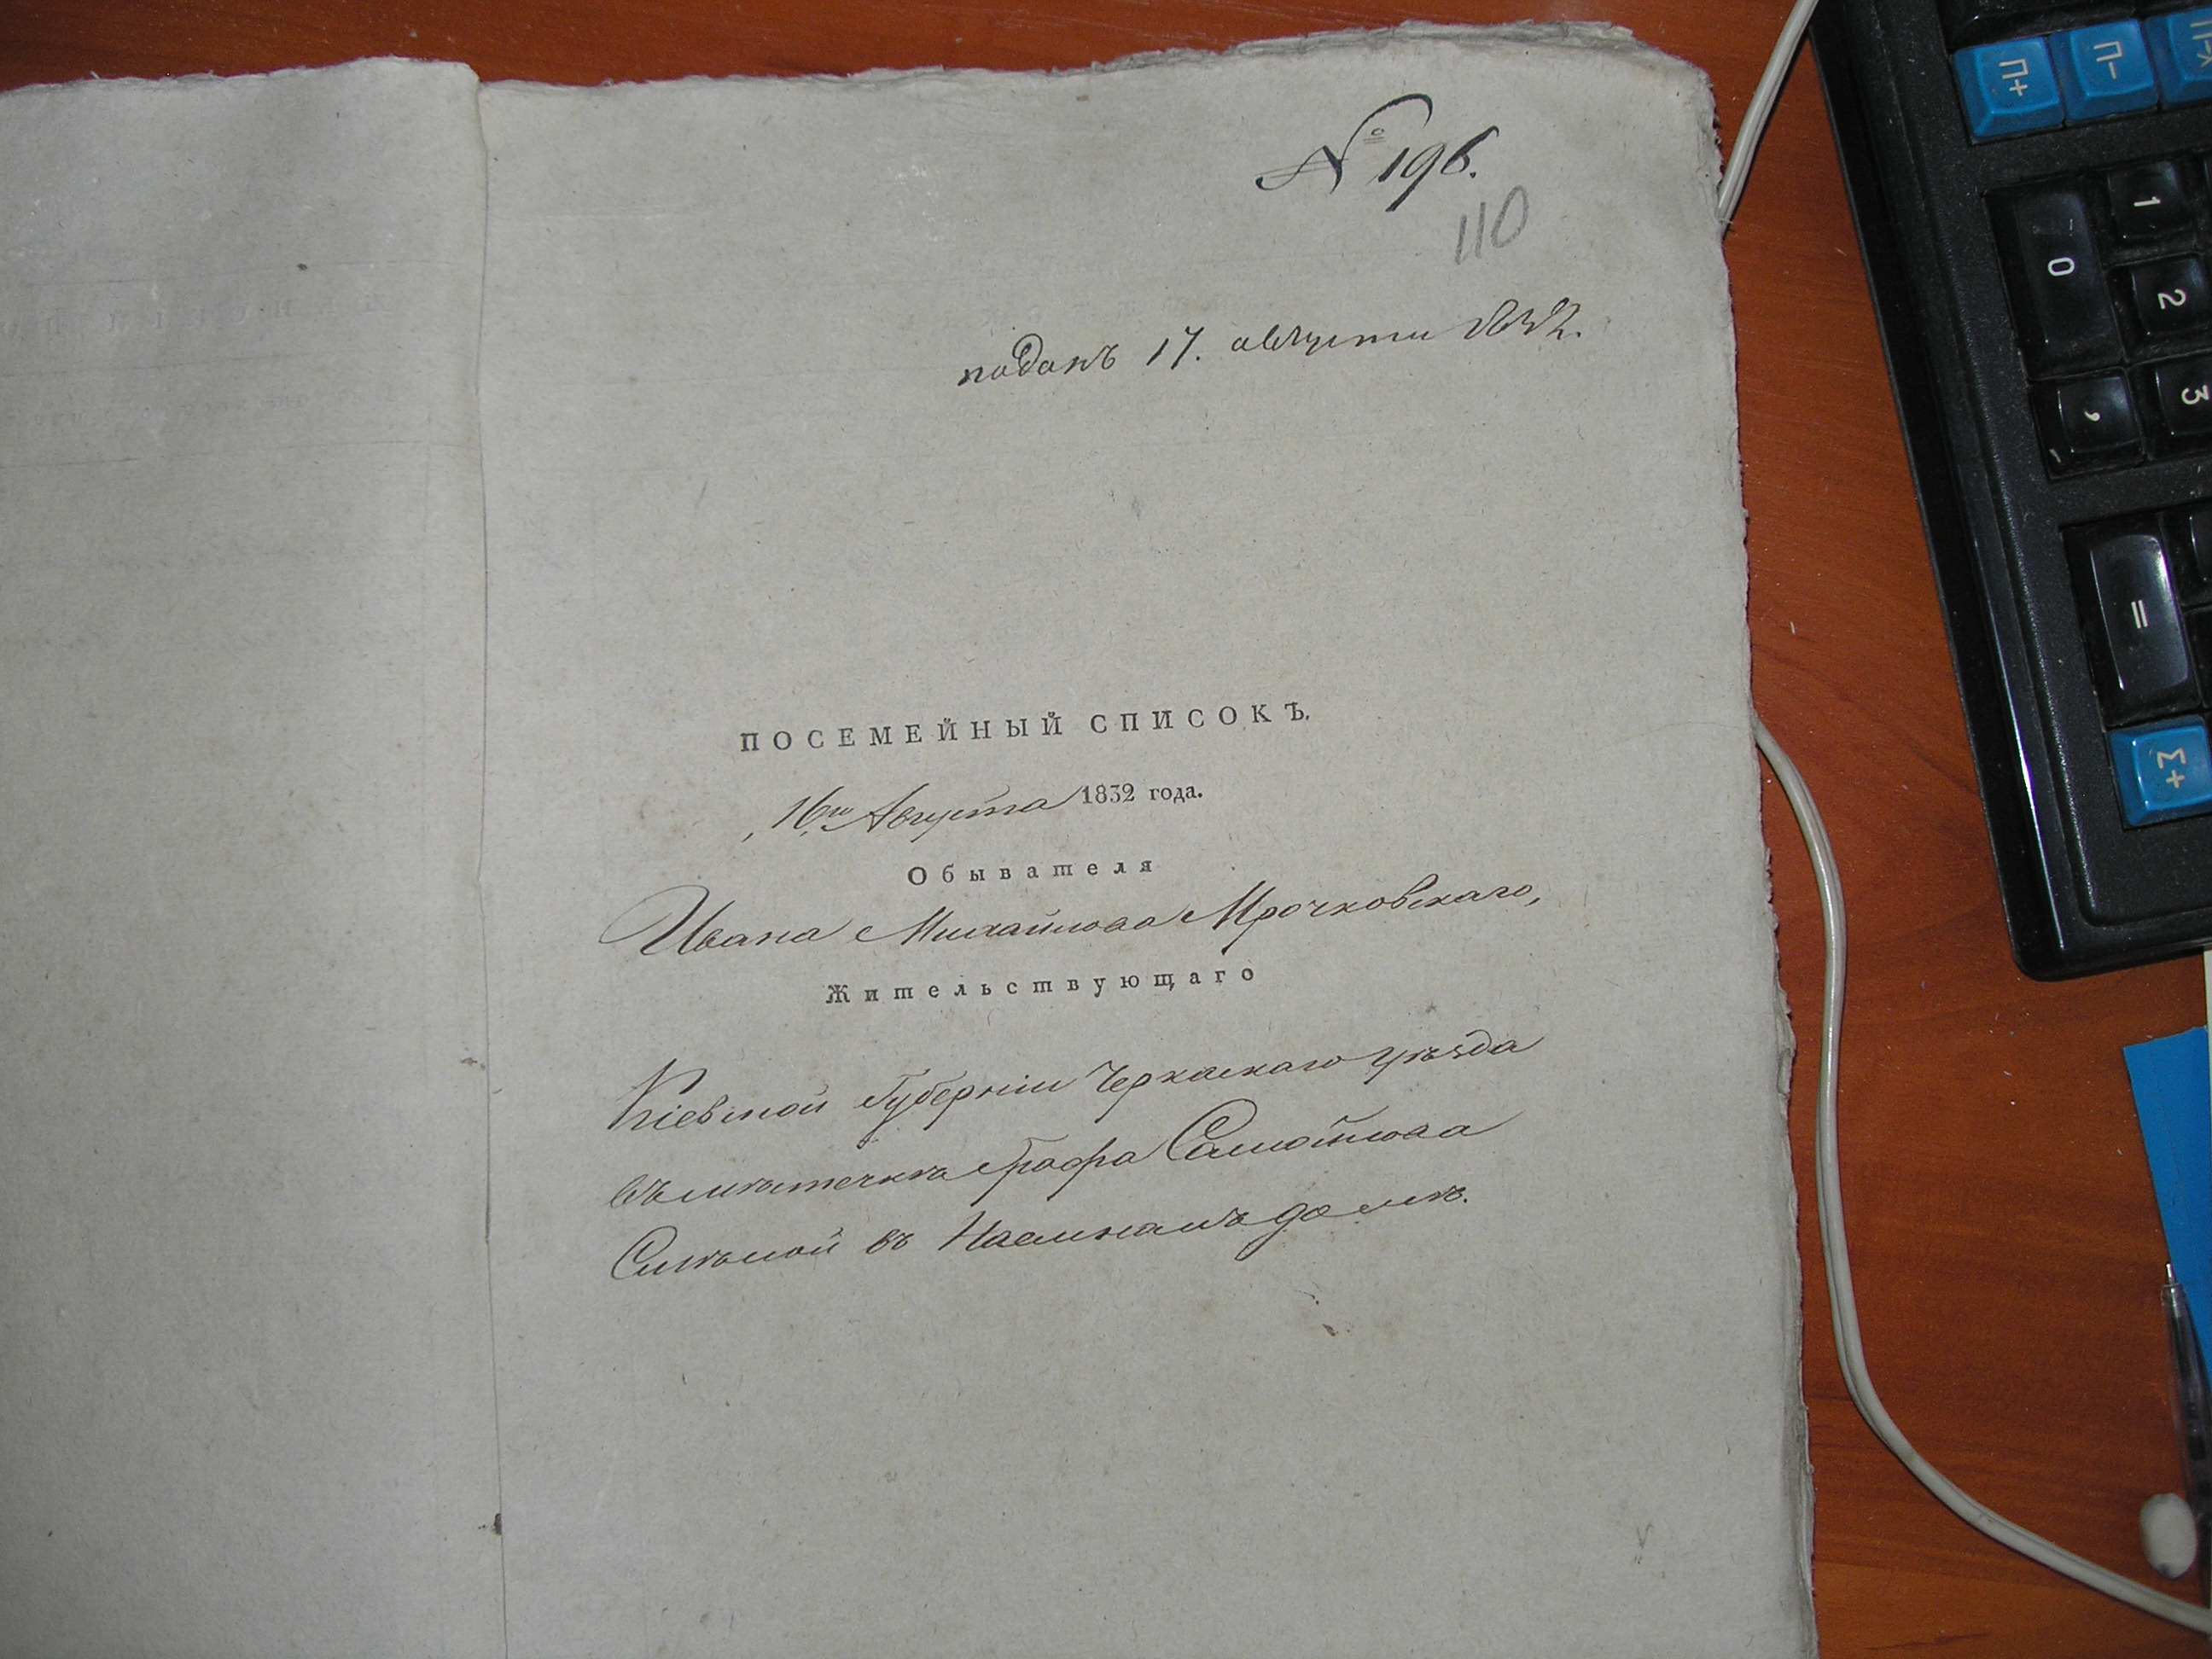 № 196.
110
поданъ 17. августа 1832.
ПОСЕМЕЙНЫЙ СПИСОКЪ.
16го Августа 1832 года.
Обывателя
Ивана Михайлова Мрочковскаго,
Жительствующаго
Кіевской Губерніи Черкаскаго уѣзда
въ мѣстечкѣ Графа Самойлова
Смѣлой въ Наемномъ домѣ.
П+
П-
0
1
2
,
3
=
Σ+